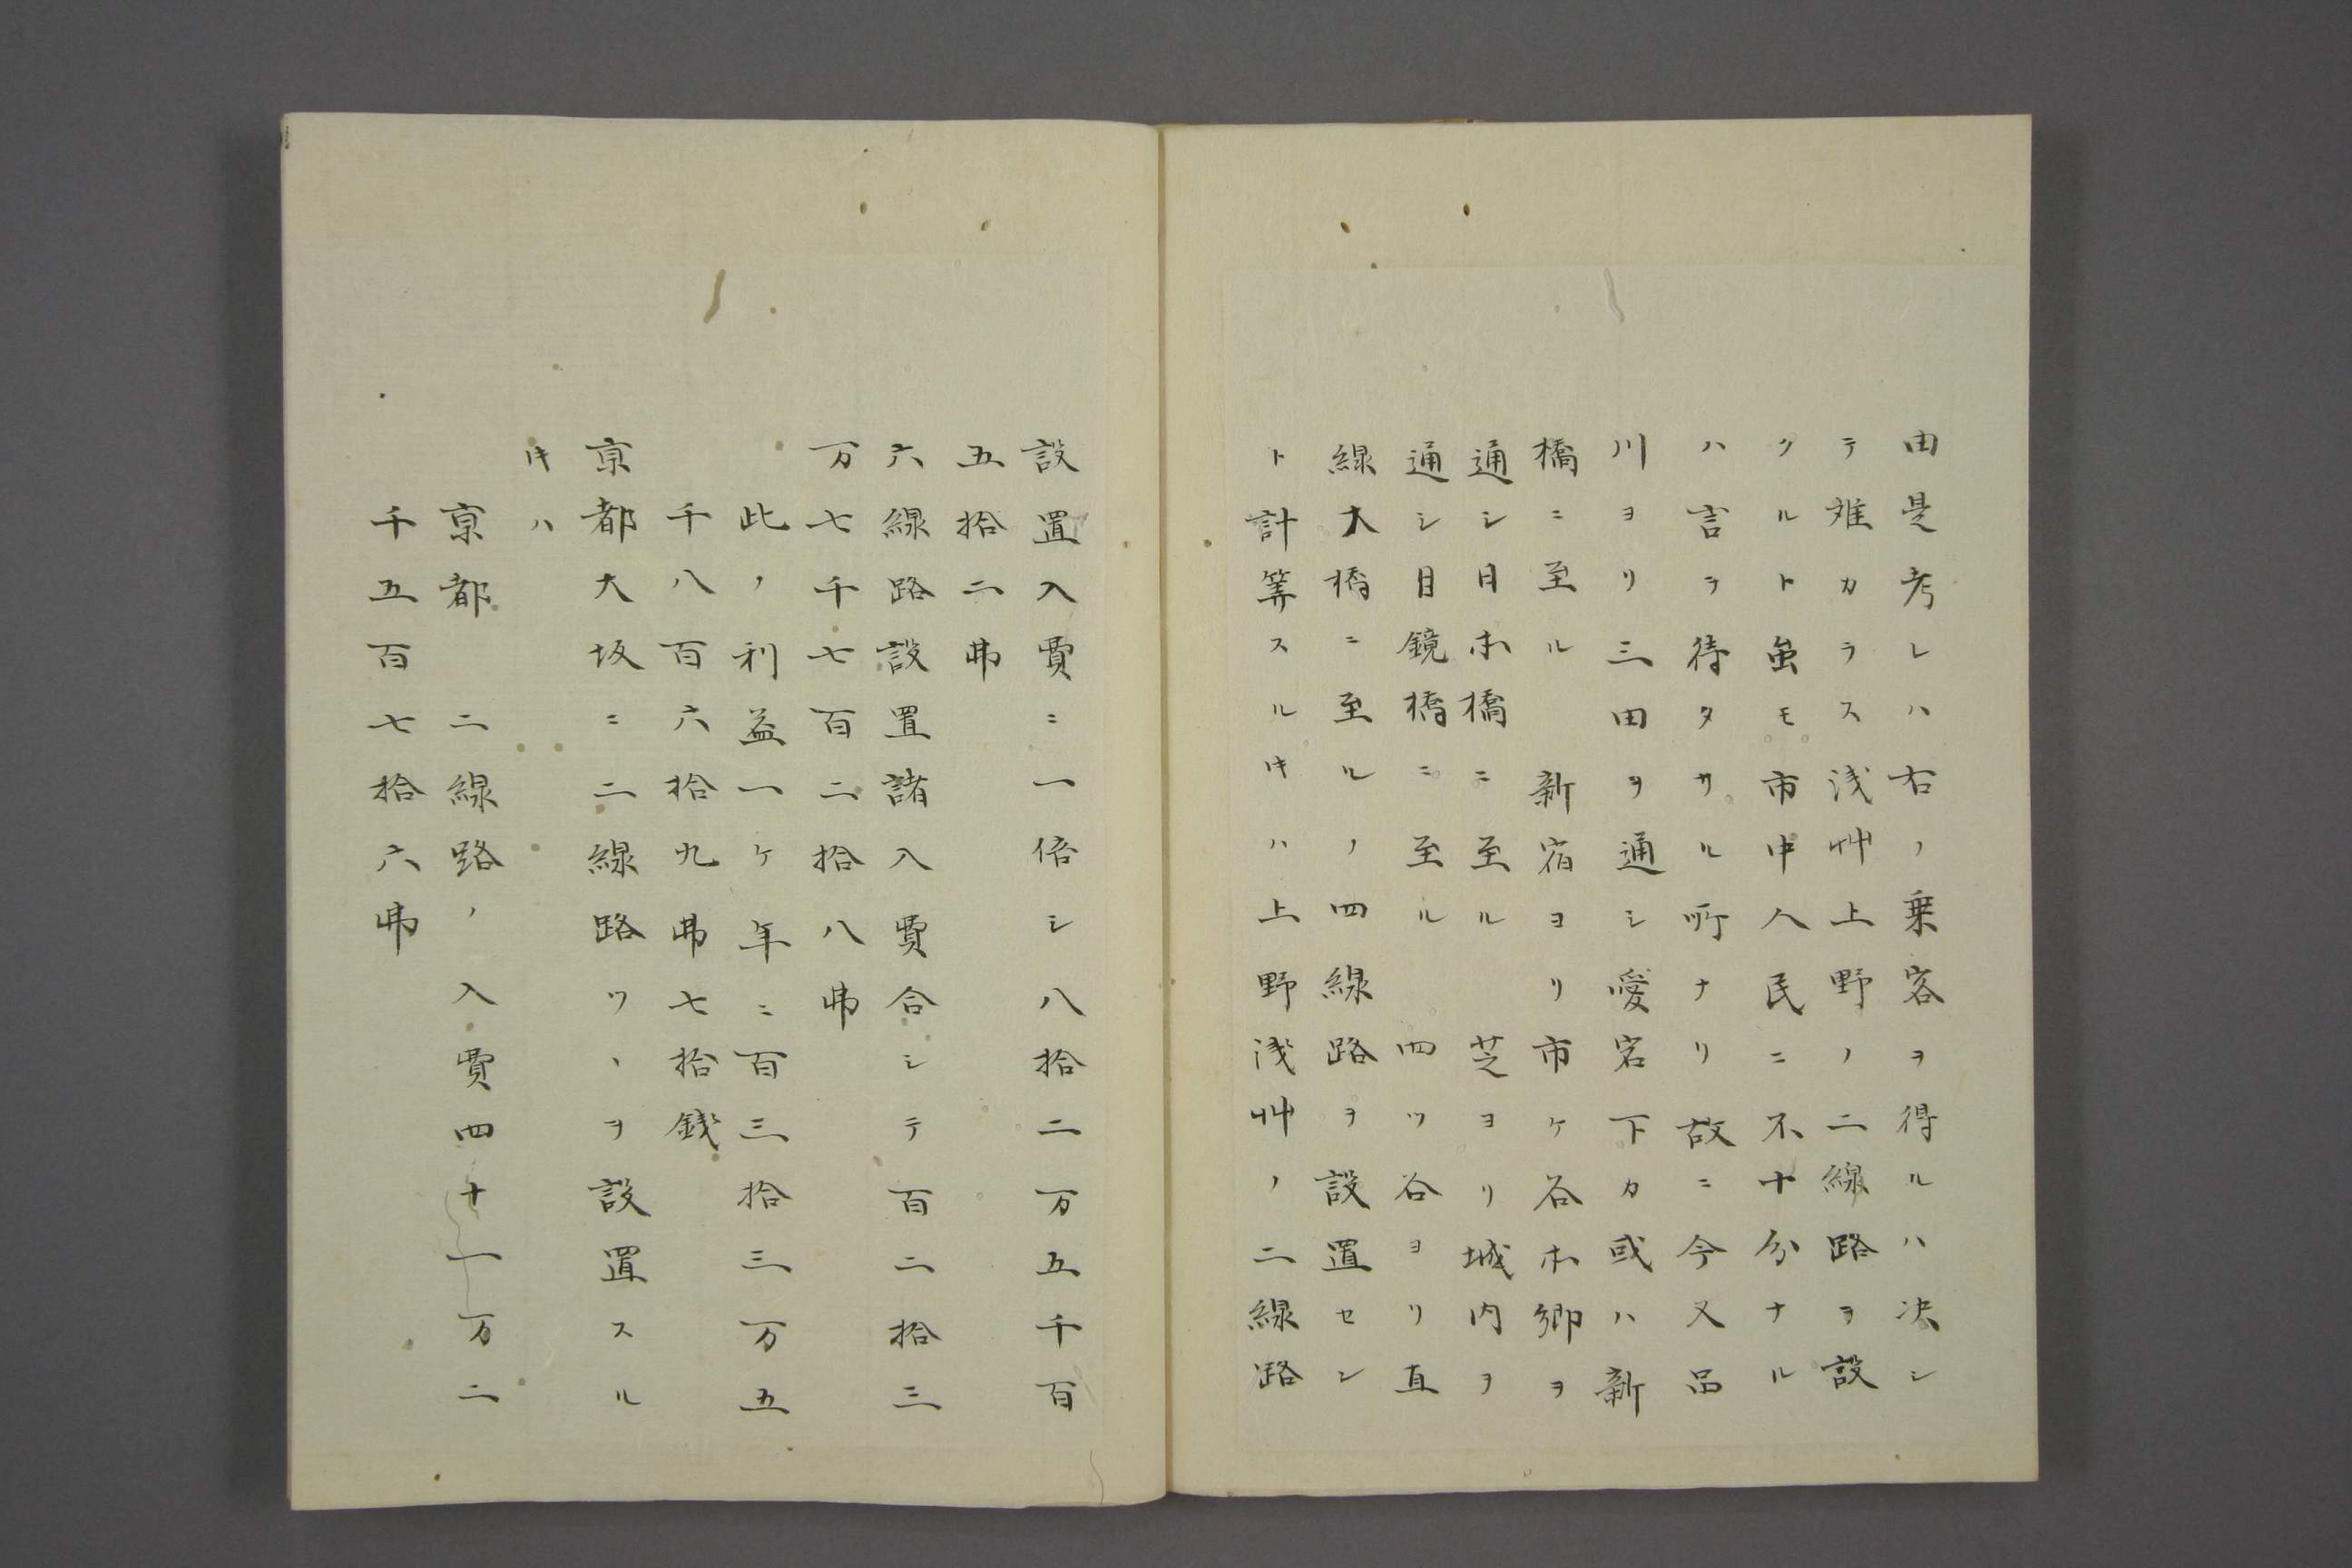 由是考レハ右ノ乗客ヲ得ルハ决シ
テ難カラス浅艸上野ノ二線路ヲ設
クルト虽モ市中人民ニ不十分ナル
ハ言ヲ待タサル所ナリ故ニ今又品
川ヨリ三田ヲ通シ愛宕下カ或ハ新
橋ニ至ル 新宿ヨリ市ケ谷本郷ヲ
通シ日本橋ニ至ル 芝ヨリ城内ヲ
通シ目鏡橋ニ至ル 四ツ谷ヨリ直
線大橋ニ至ルノ四線路ヲ設置セン
ト計筭スルキハ上野浅艸ノ二線路
設置入費ニ一倍シ八拾二万五千百
五拾二弗
六線路設置諸入費合シテ百二拾三
万七千七百二拾八弗
此ノ利益一ケ年ニ百三拾三万五
千八百六拾九弗七拾銭
京都大坂ニ二線路ツヽヲ設置スル
キハ
京都 二線路ノ入費四十一万二
千五百七拾六弗